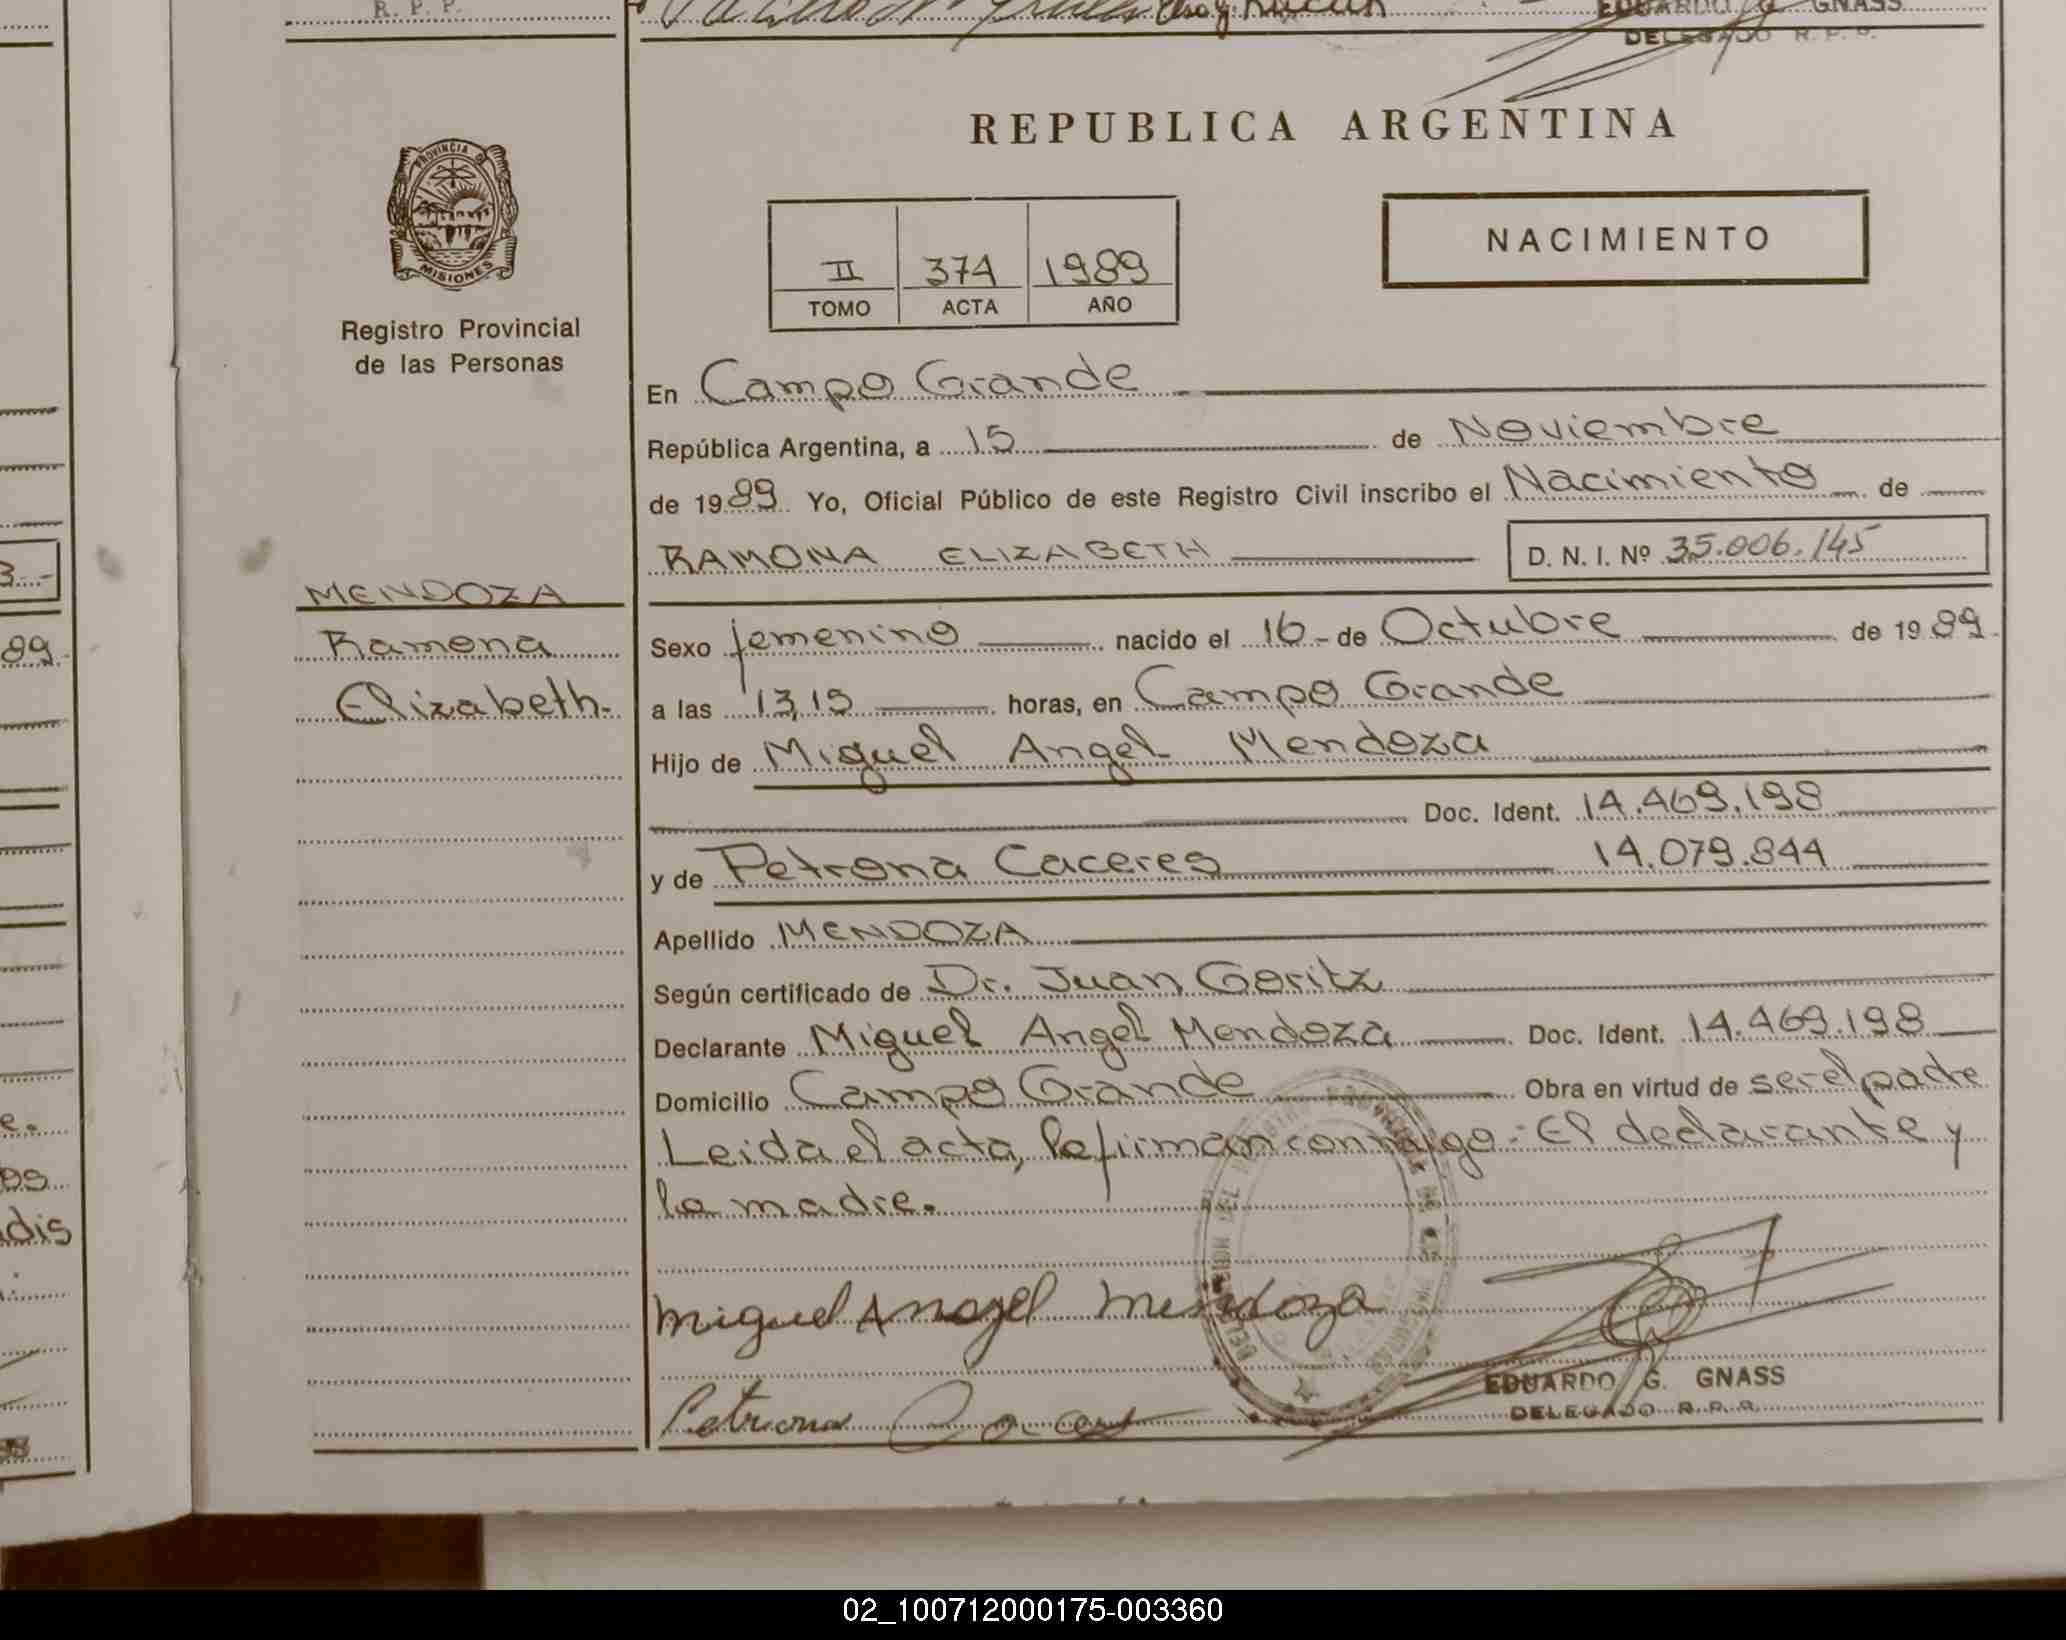 R. P. P.
EDUARDO G. GNASS
DELEGADO R. P. P.
REPUBLICA ARGENTINA
PROVINCIA DE
MISIONES
Registro Provincial
de las Personas
II 374 1989
TOMO ACTA AÑO
NACIMIENTO
En Campo Grande
República Argentina, a 15 de Noviembre
de 1989 Yo, Oficial Público de este Registro Civil inscribo el Nacimiento de
RAMONA ELIZABETH D. N. I. Nº 35.006.145
MENDOZA
Ramona
Elizabeth.
Sexo femenino nacido el 16 - de Octubre de 1989
a las 13,15 horas, en Campo Grande
Hijo de Miguel Angel Mendoza
Doc. Ident. 14.469.198
y de Petrona Caceres 14.079.844
Apellido MENDOZA
Según certificado de Dr. Juan Goritz
Declarante Miguel Angel Mendoza Doc. Ident. 14.469.198
Domicilio Campo Grande Obra en virtud de ser el padre
Leida el acta, la firman conmigo: El declarante y
la madre.
Miguel Angel Mendoza
Petrona
EDUARDO G. GNASS
DELEGADO R. P. P.
02_100712000175-003360